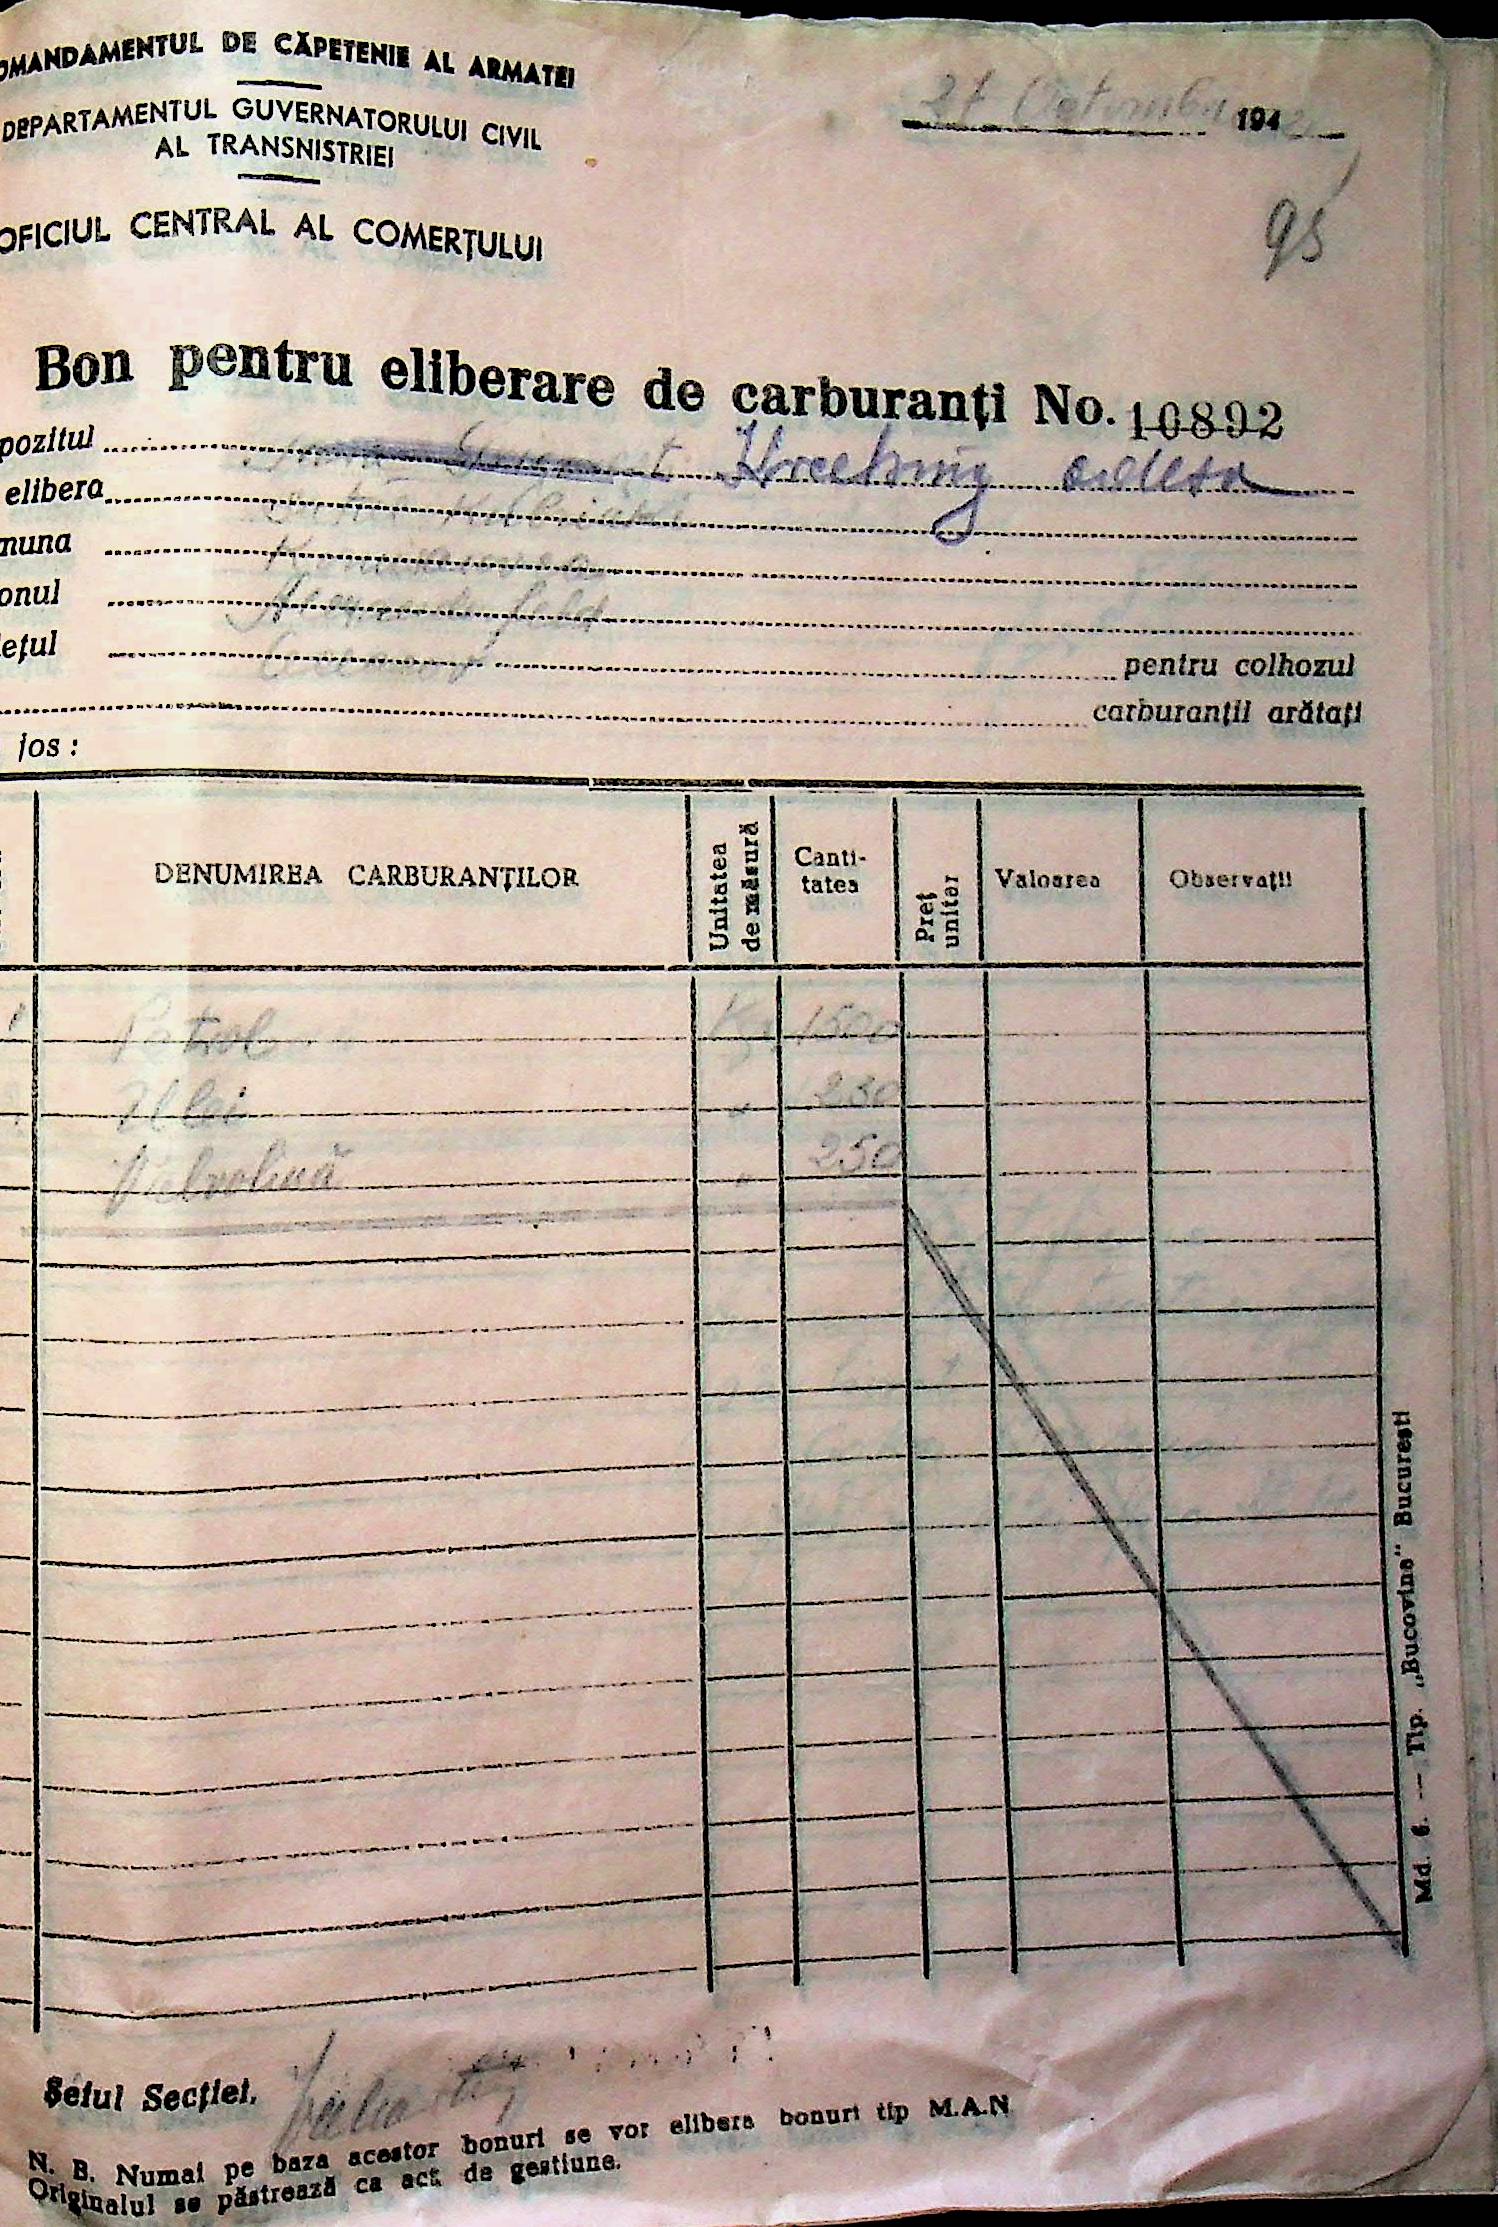 OMANDAMENTUL DE CĂPETENIE AL ARMATEI
DEPARTAMENTUL GUVERNATORULUI CIVIL
AL TRANSNISTRIEI
OFICIUL CENTRAL AL COMERȚULUI
27 Octombrie 1942
95
Bon pentru eliberare de carburanți No. 10892
pozitul
elibera
muna
onul
ețul pentru colhozul
carburanții arătați
jos :
DENUMIREA CARBURANȚILOR Unitatea de măsură Canti-tatea Preț unitar Valoarea Observații
Petrol Kg. 1500
Ulei " 230
Valvolină " 250
Șeful Secției,
N. B. Numai pe baza acestor bonuri se vor elibera bonuri tip M.A.N
Originalul se păstrează ca act de gestiune.
Md. 6. — Tip. „Bucovina" București